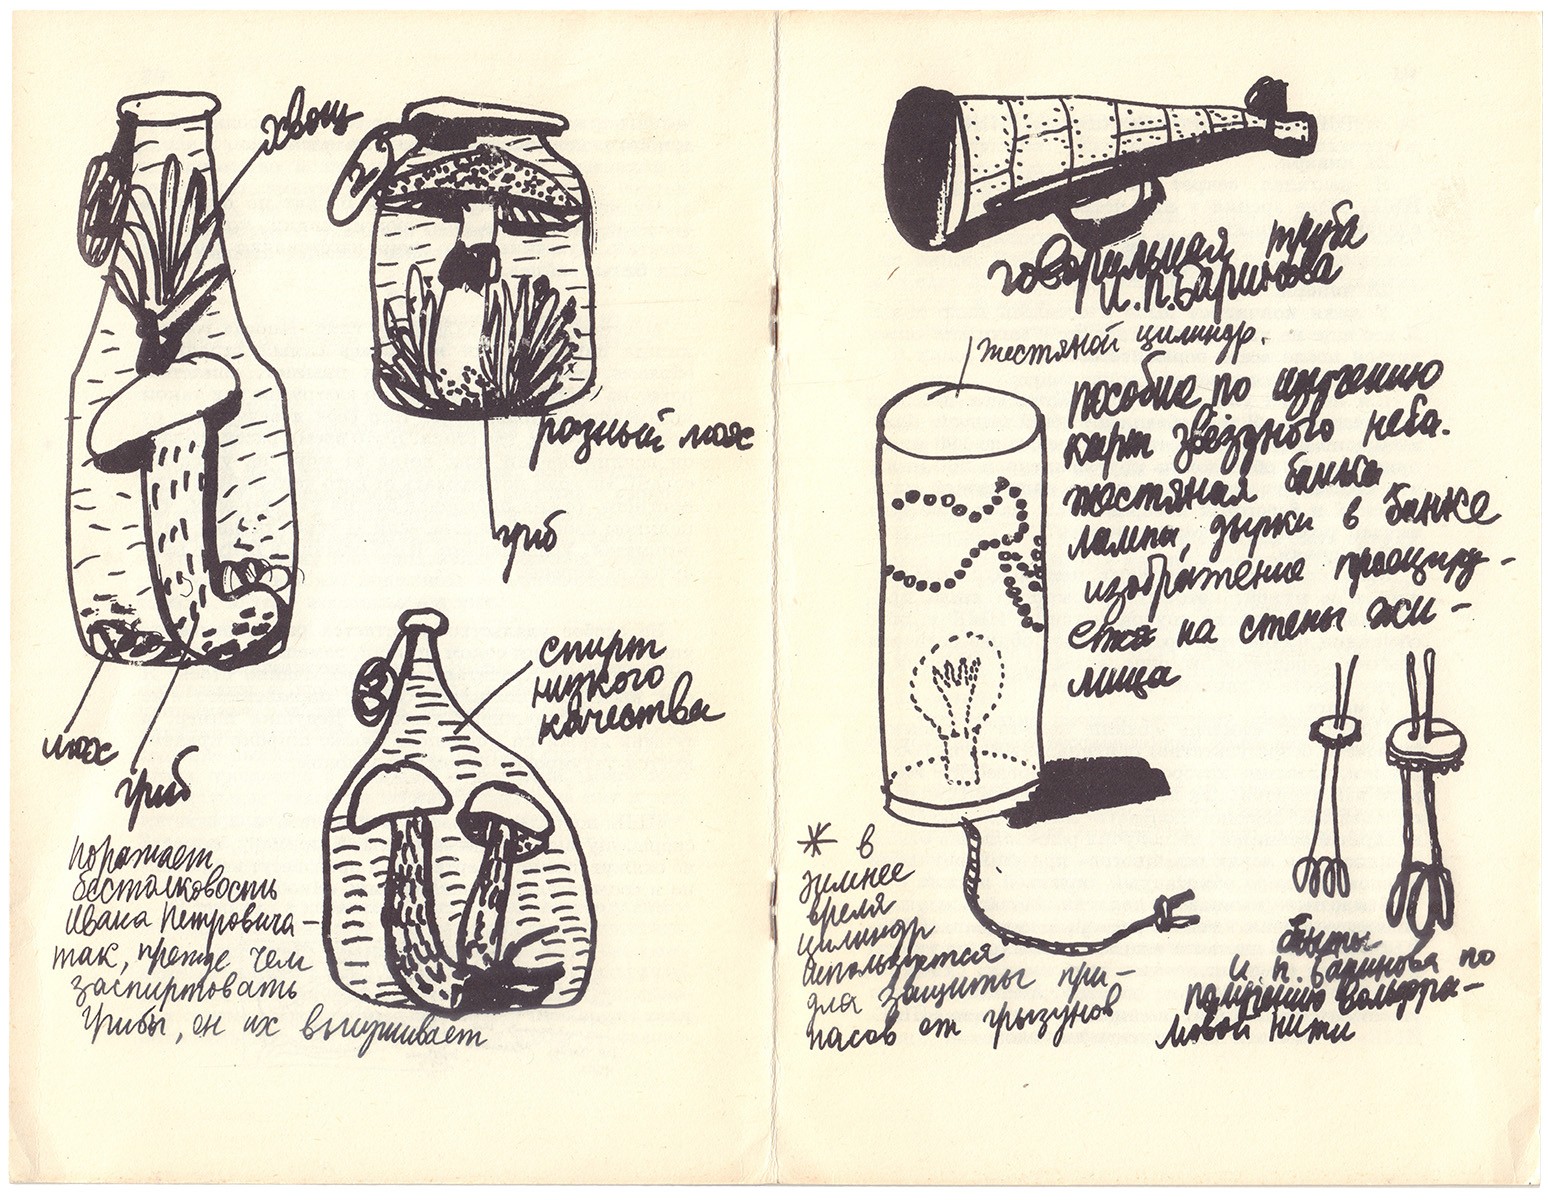 хвощ
2
разный мох
гриб
мох
гриб
3
спирт
низкого
качества
поражает
бестолковость
Ивана Петровича —
так, прежде чем
заспиртовать
грибы, он их высушивает
говорильная труба
И.П. Баринова
жестяной цилиндр.
пособие по изучению
карт звёздного неба.
жестяная банка,
лампы, дырки в банке
изображение проециру-
ется на стены жи-
лища
* в
зимнее
время
цилиндр
используется
для защиты при-
пасов от грызунов
опыты
И.П. Баринова по
получению вольфра-
мовой нити